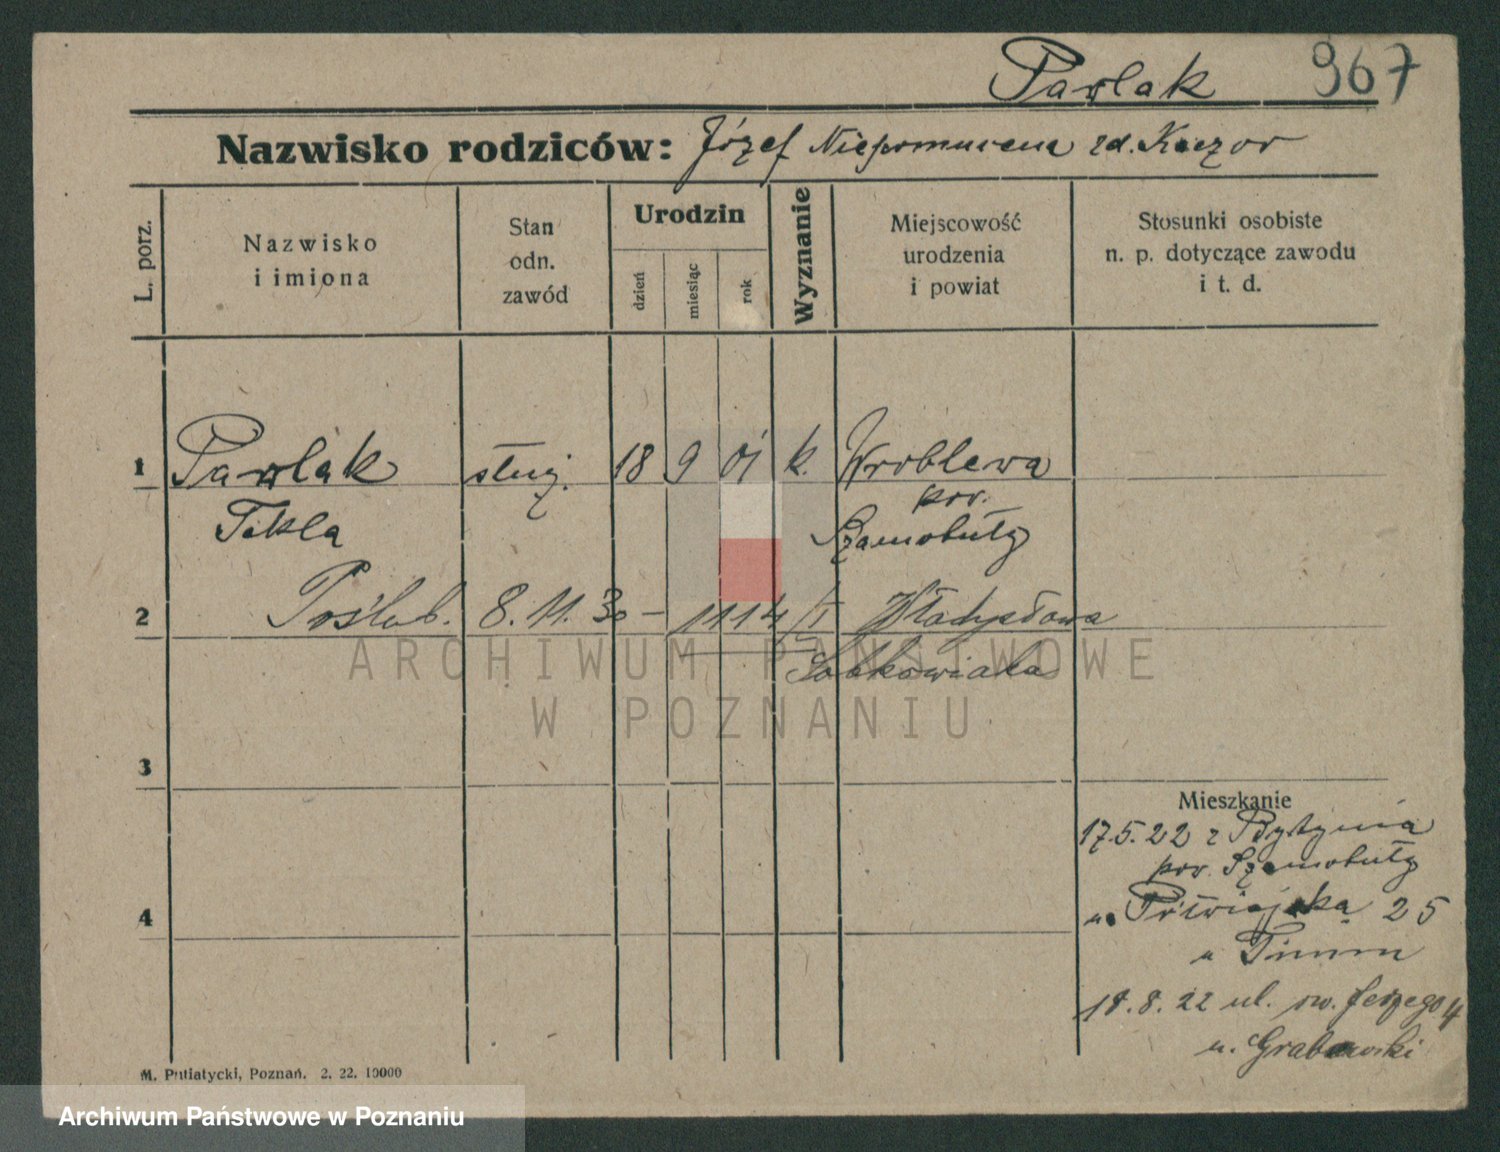 Pawlak 967
Nazwisko rodziców: Józef Niepomucena zd. Kaczor
L. porz.
Nazwisko
i imiona
Stan
odn.
zawód
Urodzin
dzień
miesiąc
rok
Wyznanie
Miejscowość
urodzenia
i powiat
Stosunki osobiste
n. p. dotyczące zawodu
i t. d.
1 Pawlak służ. 18 9 01 k. Wroblewa
pow.
Tekla Szamotuły
2 Poślub. 8.11.30 – 1114/I Władysława
Sobkowiaka
ARCHIWUM PAŃSTWOWE
W POZNANIU
3
Mieszkanie
17.5.22 z Bytynia
pow. Szamotuły
4
25
u
18.8.22 ul. sw. Jerzego 4
u. Grabowski
M. Putiatycki, Poznań. 2. 22. 10000
Archiwum Państwowe w Poznaniu